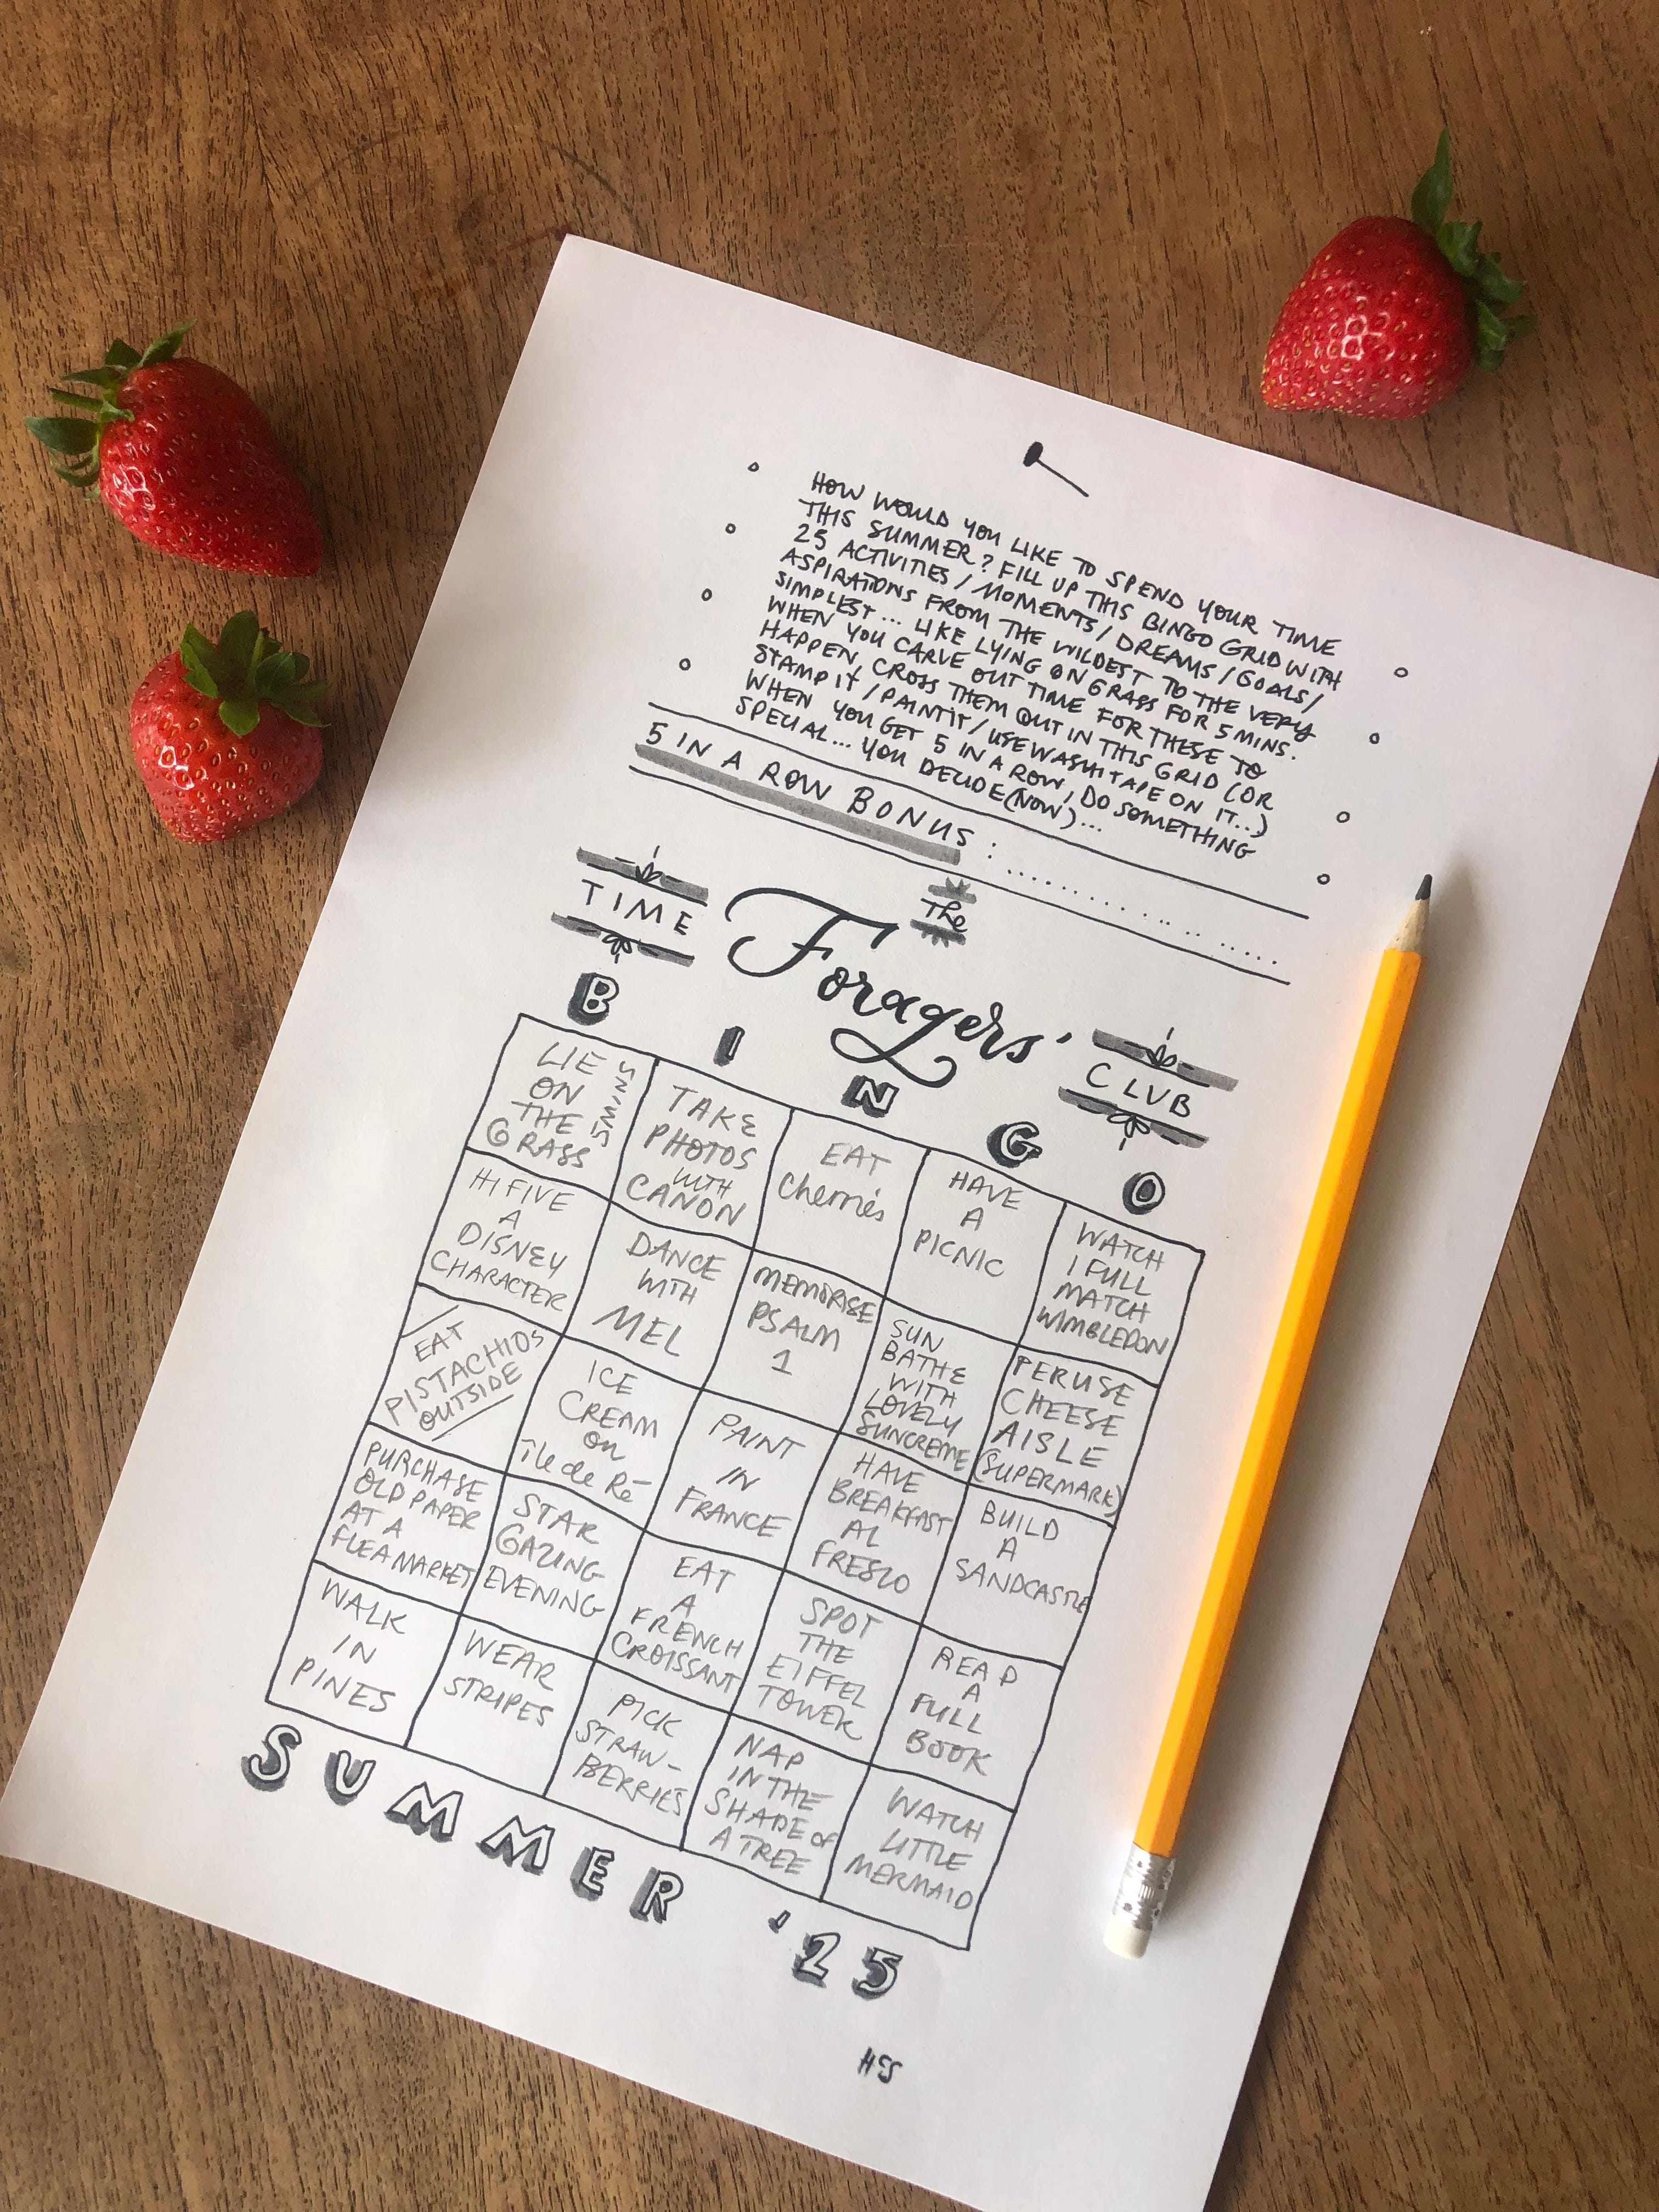 HOW WOULD YOU LIKE TO SPEND YOUR TIME
THIS SUMMER? FILL UP THIS BINGO GRID WITH
25 ACTIVITIES / MOMENTS / DREAMS / GOALS /
ASPIRATIONS FROM THE WILDEST TO THE VERY
SIMPLEST... LIKE LYING ON GRASS FOR 5 MINS.
WHEN YOU CARVE OUT TIME FOR THESE TO
HAPPEN, CROSS THEM OUT IN THIS GRID (OR
STAMP IT / PAINT IT / USE WASHI TAPE ON IT...)
WHEN YOU GET 5 IN A ROW, DO SOMETHING
SPECIAL... YOU DECIDE (NOW)...
5 IN A ROW BONUS :
The
TIME
Foragers'
CLUB
B I N G O
LIE
ON
THE
GRASS
5 MINS
TAKE
PHOTOS
WITH
CANON
EAT
Cherries
HAVE
A
PICNIC
WATCH
1 FULL
MATCH
WIMBLEDON
HI FIVE
A
DISNEY
CHARACTER
DANCE
WITH
MEL
MEMORISE
PSALM
1
SUN
BATHE
WITH
LOVELY
SUNCREME
PERUSE
CHEESE
AISLE
(SUPERMARK)
EAT
PISTACHIOS
OUTSIDE
ICE
CREAM
on
île de Ré
PAINT
IN
FRANCE
HAVE
BREAKFAST
AL
FRESCO
BUILD
A
SANDCASTLE
PURCHASE
OLD PAPER
AT A
FLEA MARKET
STAR
GAZING
EVENING
EAT
A
FRENCH
CROISSANT
SPOT
THE
EIFFEL
TOWER
READ
A
FULL
BOOK
WALK
IN
PINES
WEAR
STRIPES
PICK
STRAW-
BERRIES
NAP
IN THE
SHADE OF
A TREE
WATCH
LITTLE
MERMAID
SUMMER '25